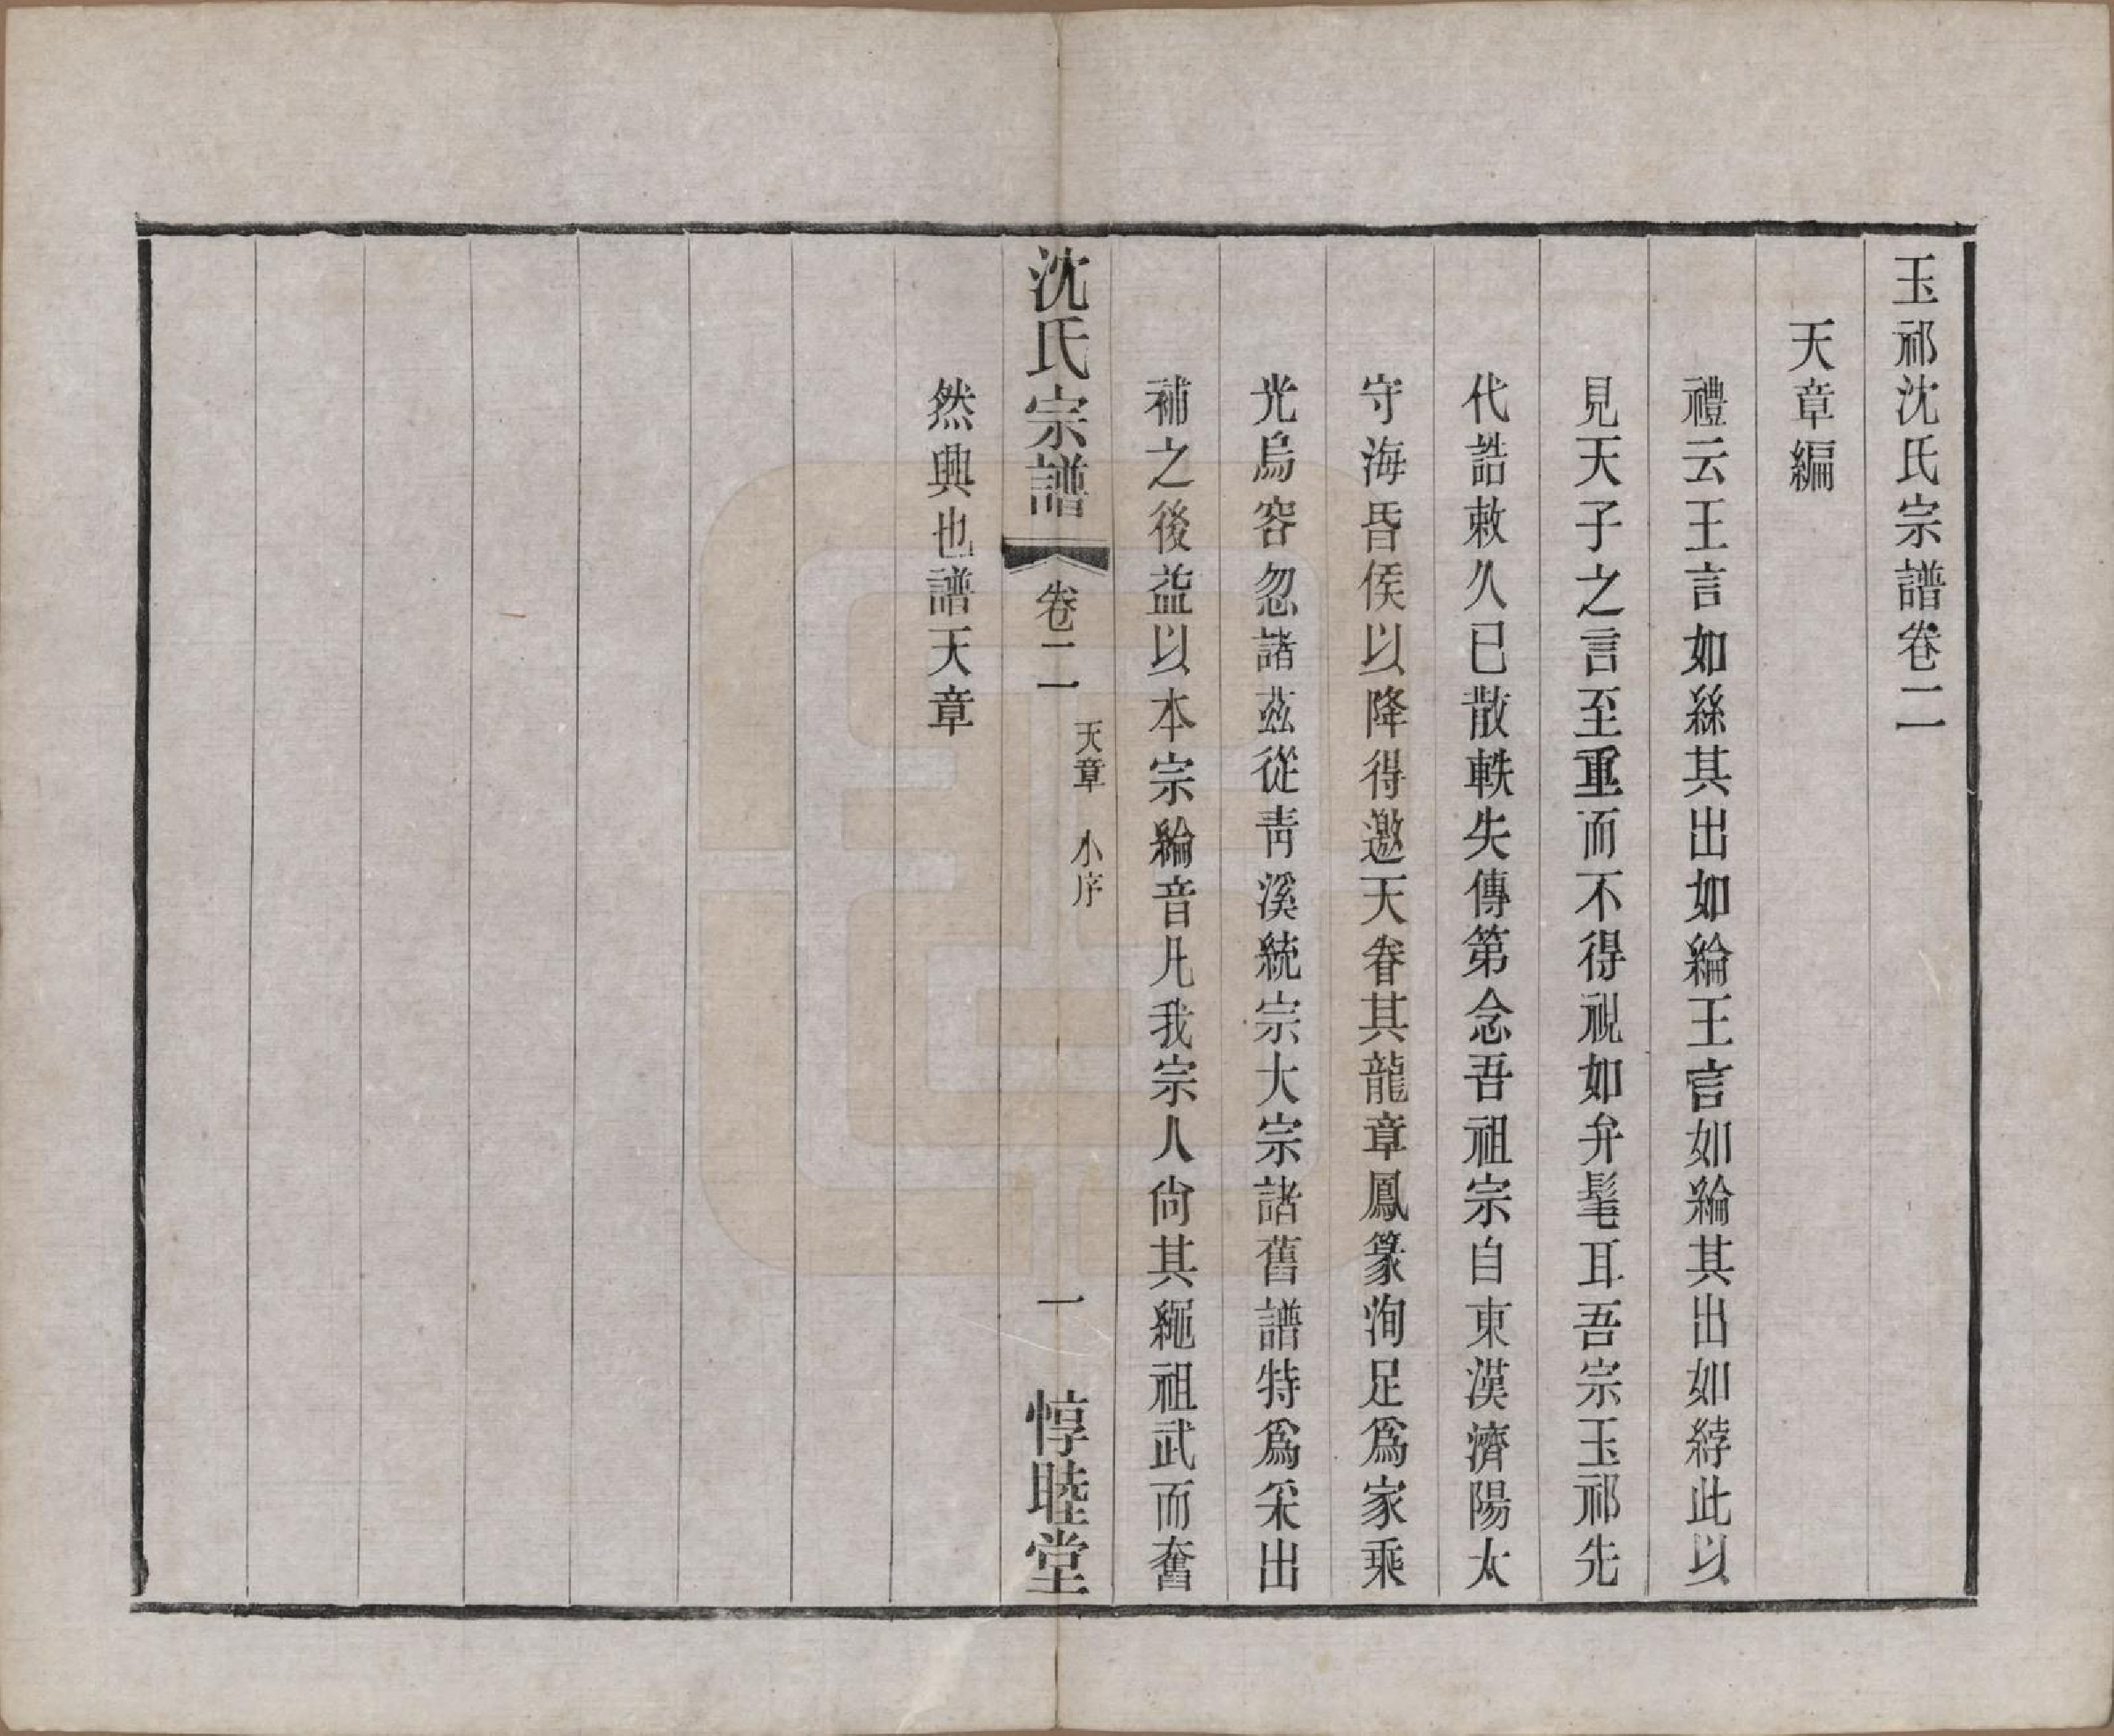 玉祁沈氏宗譜卷二
天章編
禮云王言如絲其出如綸王言如綸其出如綍此以
見天子之言至重而不得視如弁髦耳吾宗玉祁先
代誥敕久已散軼失傳第念吾祖宗自東漢濟陽太
守海昏侯以降得邀天眷其龍章鳳篆洵足爲家乘
光烏容忽諸茲從靑溪統宗大宗諸舊譜特爲采出
補之後益以本宗綸音凡我宗人尙其繩祖武而奮
沈氏宗譜 卷二 天章 小序 一 惇睦堂
然興也譜天章